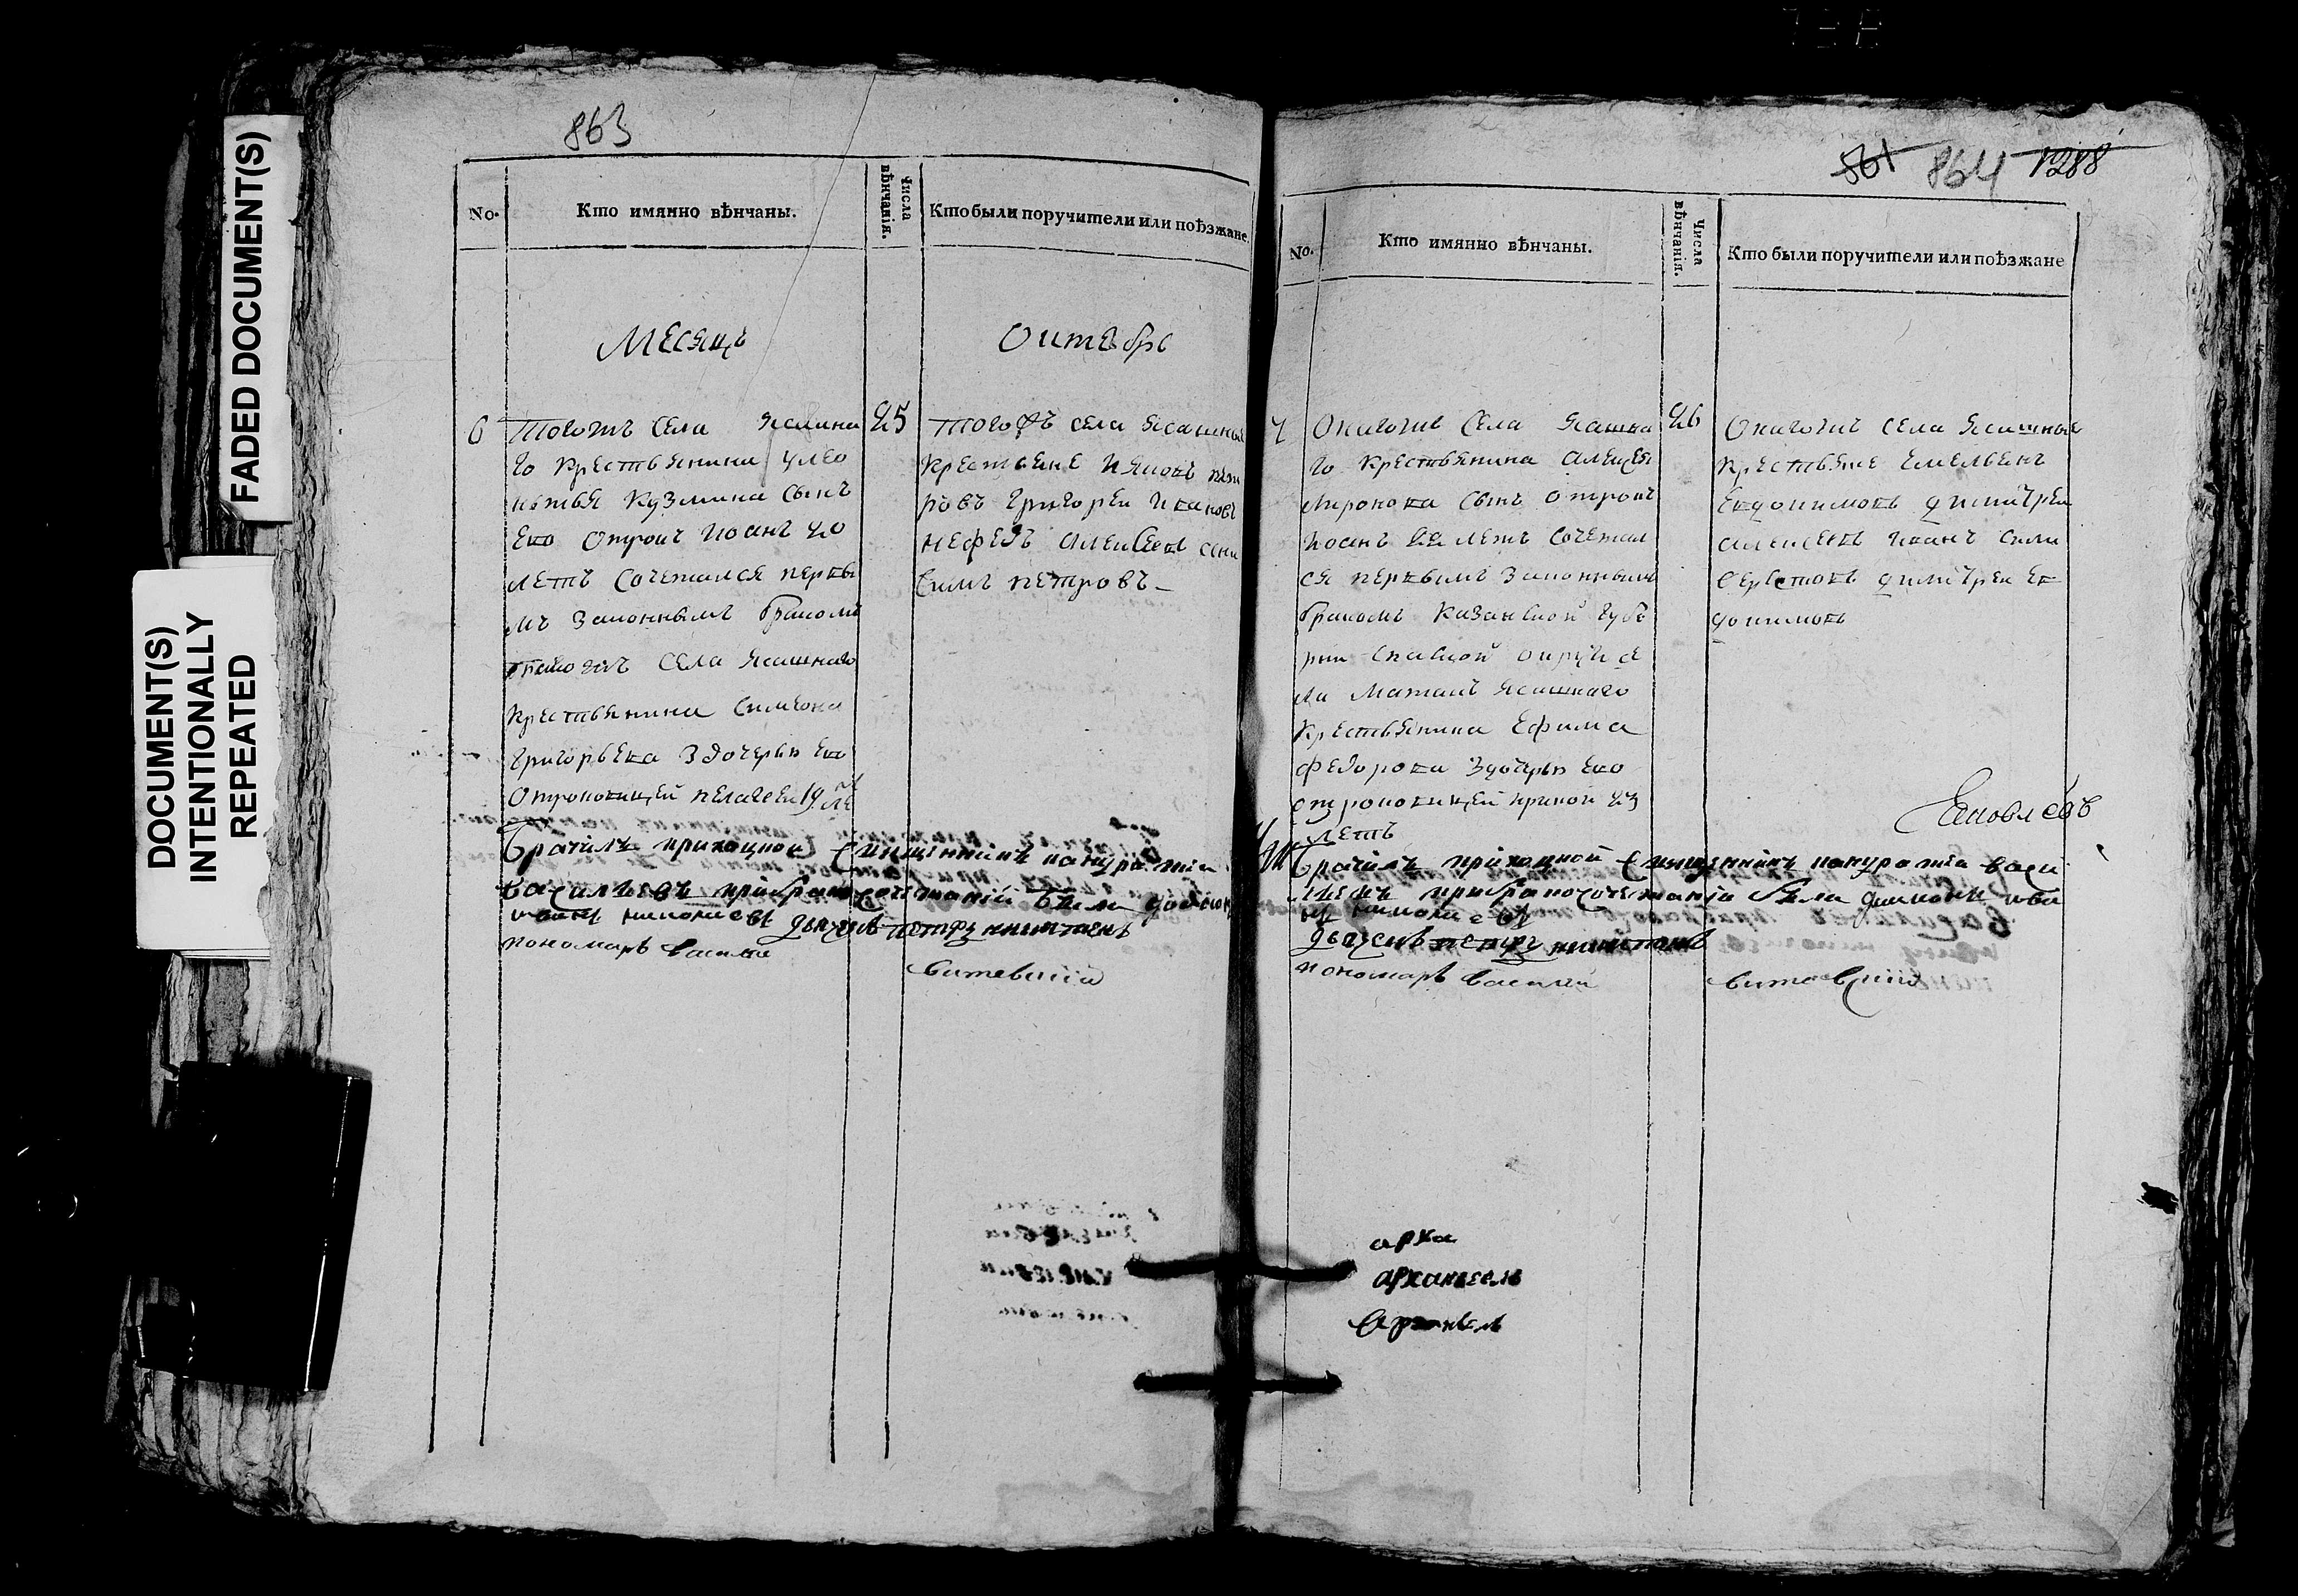 FADED DOCUMENT(S)
DOCUMENT(S)
INTENTIONALLY
REPEATED
863
No.
Кто имянно вѣнчаны.
Числа
вѣнчанія.
Кто были поручители или поѣзжане.
Месяцъ
Октябрь
6
25
Тогожъ села ясашна
го крестьянина
Кузмина сынъ
ево отрокъ Иоанъ 20
летъ сочетался первы
мъ законнымъ бракомъ
тогожъ села ясашнаго
крестьянина Симеона
Григорьева здочерью ево
отроковицей пелагеей 19 ле
Тогожъ села ясашныя
крестьяне Ияковъ пет
ровъ Григореи Ивановъ
нефедъ Алексеевъ они
симъ петровъ
Брачилъ приходной священникъ панкратiй
Васильевъ при бракосочетанiи были
дьячекъ петръ никитинъ
пономарь Василей
витевскiй
861 864 1288
No.
Кто имянно вѣнчаны.
Числа
вѣнчанія.
Кто были поручители или поѣзжане
7
26
Онагожъ села ясашна
го крестьянина Алексея
Миронова сынъ отрокъ
Иоанъ летъ сочетал
ся первымъ законнымъ
бракомъ Казанской губе
рнии Спаской округи се
ла Матакъ ясашнаго
крестьянина Ефима
Федорова здочерью ево
отроковицей Ириной 23
летъ
Онагожъ села ясашные
крестьяне Емельянъ
Евдокимовъ димитреи
Алексеевъ Иванъ Сили
верстовъ димитреи Ев
докимовъ
Яковлевъ
Брачилъ приходной священникъ панкратiй васи
льевъ при бракосочетанiи были
дьячекъ петръ никитинъ
пономарь Василей
витевскiй
арха
архангелъ